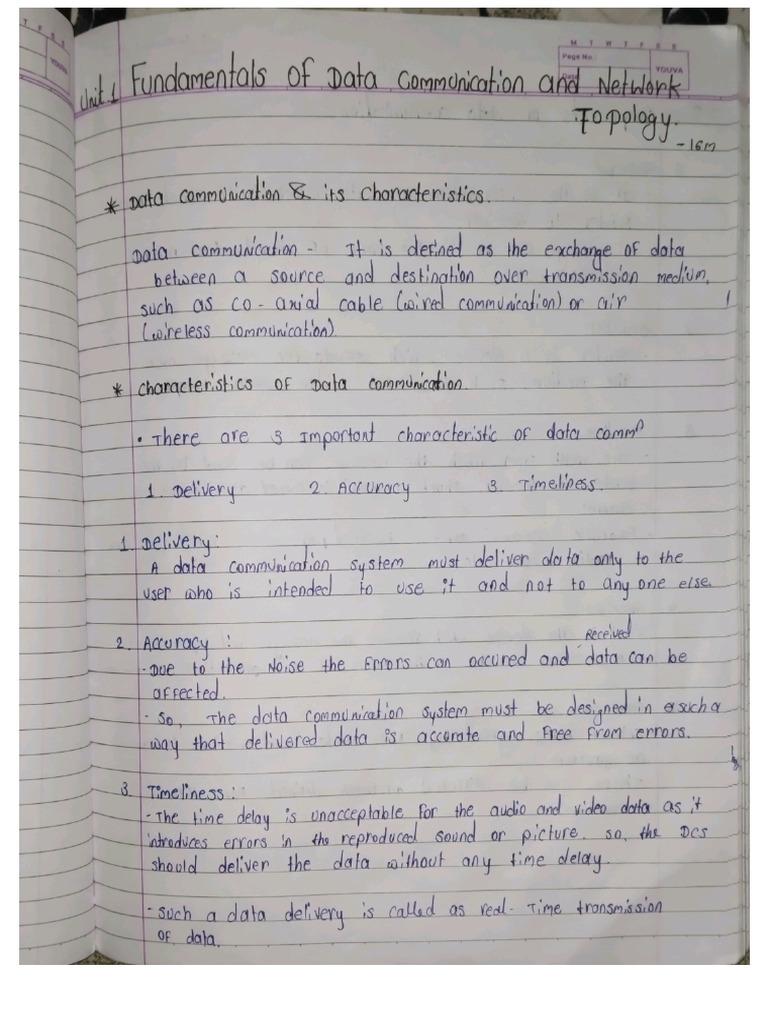 M T W T F S S
Page No.:
YOUVA
Unit.1 Fundamentals of Data Communication and Network
Topology.
- 16M
* Data communication & its characteristics.
Data communication - It is defined as the exchange of data
between a source and destination over transmission medium,
such as co-axial cable (wired communication) or air
(wireless communication)
* characteristics of Data communication.
• There are 3 Important characteristic of data commn
1. Delivery 2. Accuracy 3. Timeliness.
1. Delivery:
A data communication system must deliver data only to the
user who is intended to use it and not to any one else.
2. Accuracy :
- Due to the Noise the Errors can occured and received data can be
affected.
- So, The data communication system must be designed in such a
way that delivered data is accurate and free from errors.
3. Timeliness:
- The time delay is unacceptable for the audio and video data as it
introduces errors in the reproduced sound or picture. so, the DCS
should deliver the data without any time delay.
- Such a data delivery is called as real-Time transmission
of data.